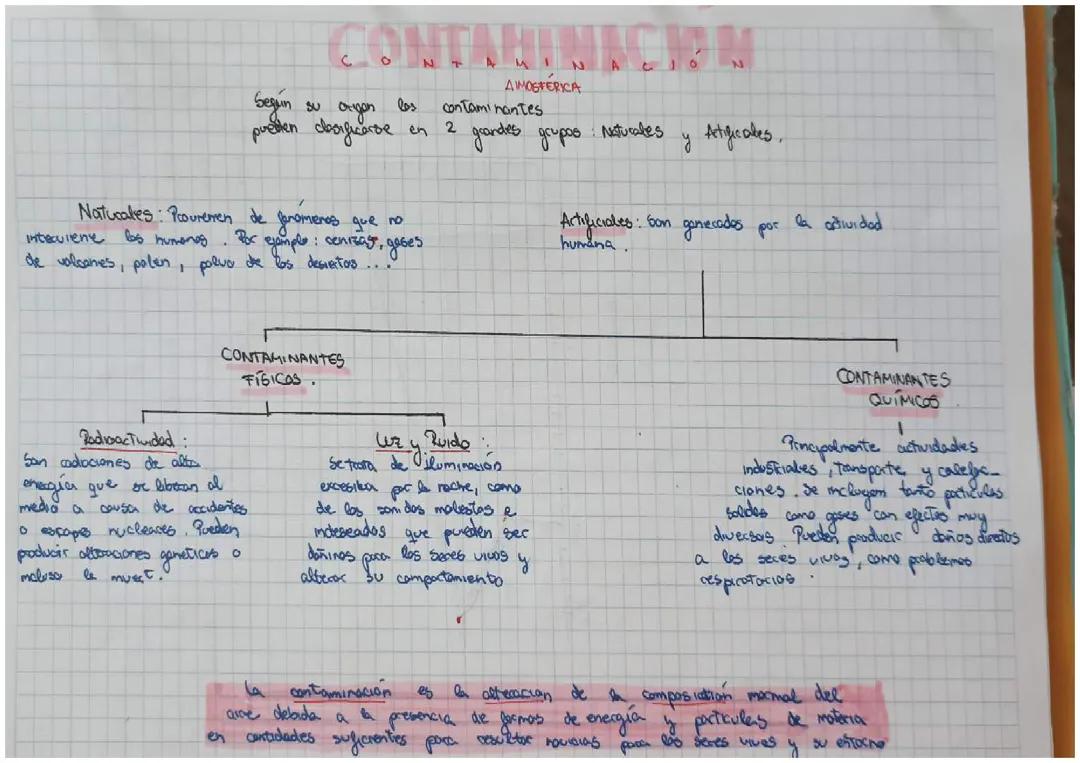 CONTAMINACIÓN
CONTAMINACIÓN
ATMOSFÉRICA
Según su origen los contaminantes
pueden clasificarse en 2 grandes grupos : Naturales y Artificiales.
Naturales : Provienen de fenómenos que no
interviene los humanos . Por ejemplo : cenizas, gases
de volcanes , polen , polvo de los desiertos ...
Artificiales : Son generados por la actividad
humana .
CONTAMINANTES
FÍSICOS .
CONTAMINANTES
QUÍMICOS
Radioactividad :
Son radiaciones de alta
energía que se liberan al
medio a causa de accidentes
o escapes nucleares. Pueden
producir alteraciones geneticas o
incluso la muerte.
Luz y Ruido :
Se trata de iluminación
excesiva por la noche, como
de los sonidos molestos e
indeseados que pueden ser
dañinos para los seres vivos y
alterar su comportamiento
Principalmente actividades
industriales , Transporte y calefac-
ciones . Se incluyen tanto particulas
solidas como gases con efectos muy
diversos. Pueden producir daños directos
a los seres vivos, como problemas
respiratorios .
La contaminación es la alteracion de la composición normal del
aire debida a la presencia de formas de energía y particulas de materia
en cantidades suficientes para resultar nocivas para los seres vivos y su entorno